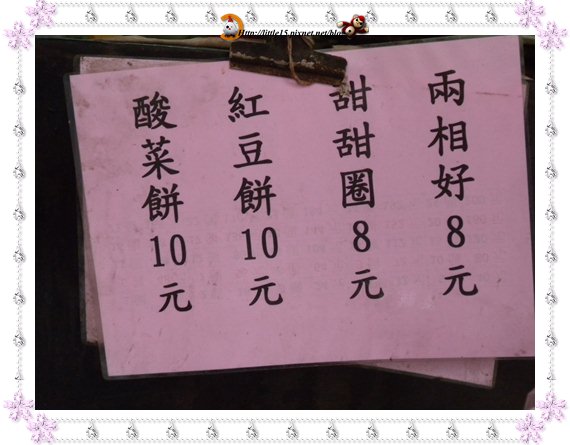 Http://little15.pixnet.net/blog
兩相好8元
甜甜圈8元
紅豆餅10元
酸菜餅10元